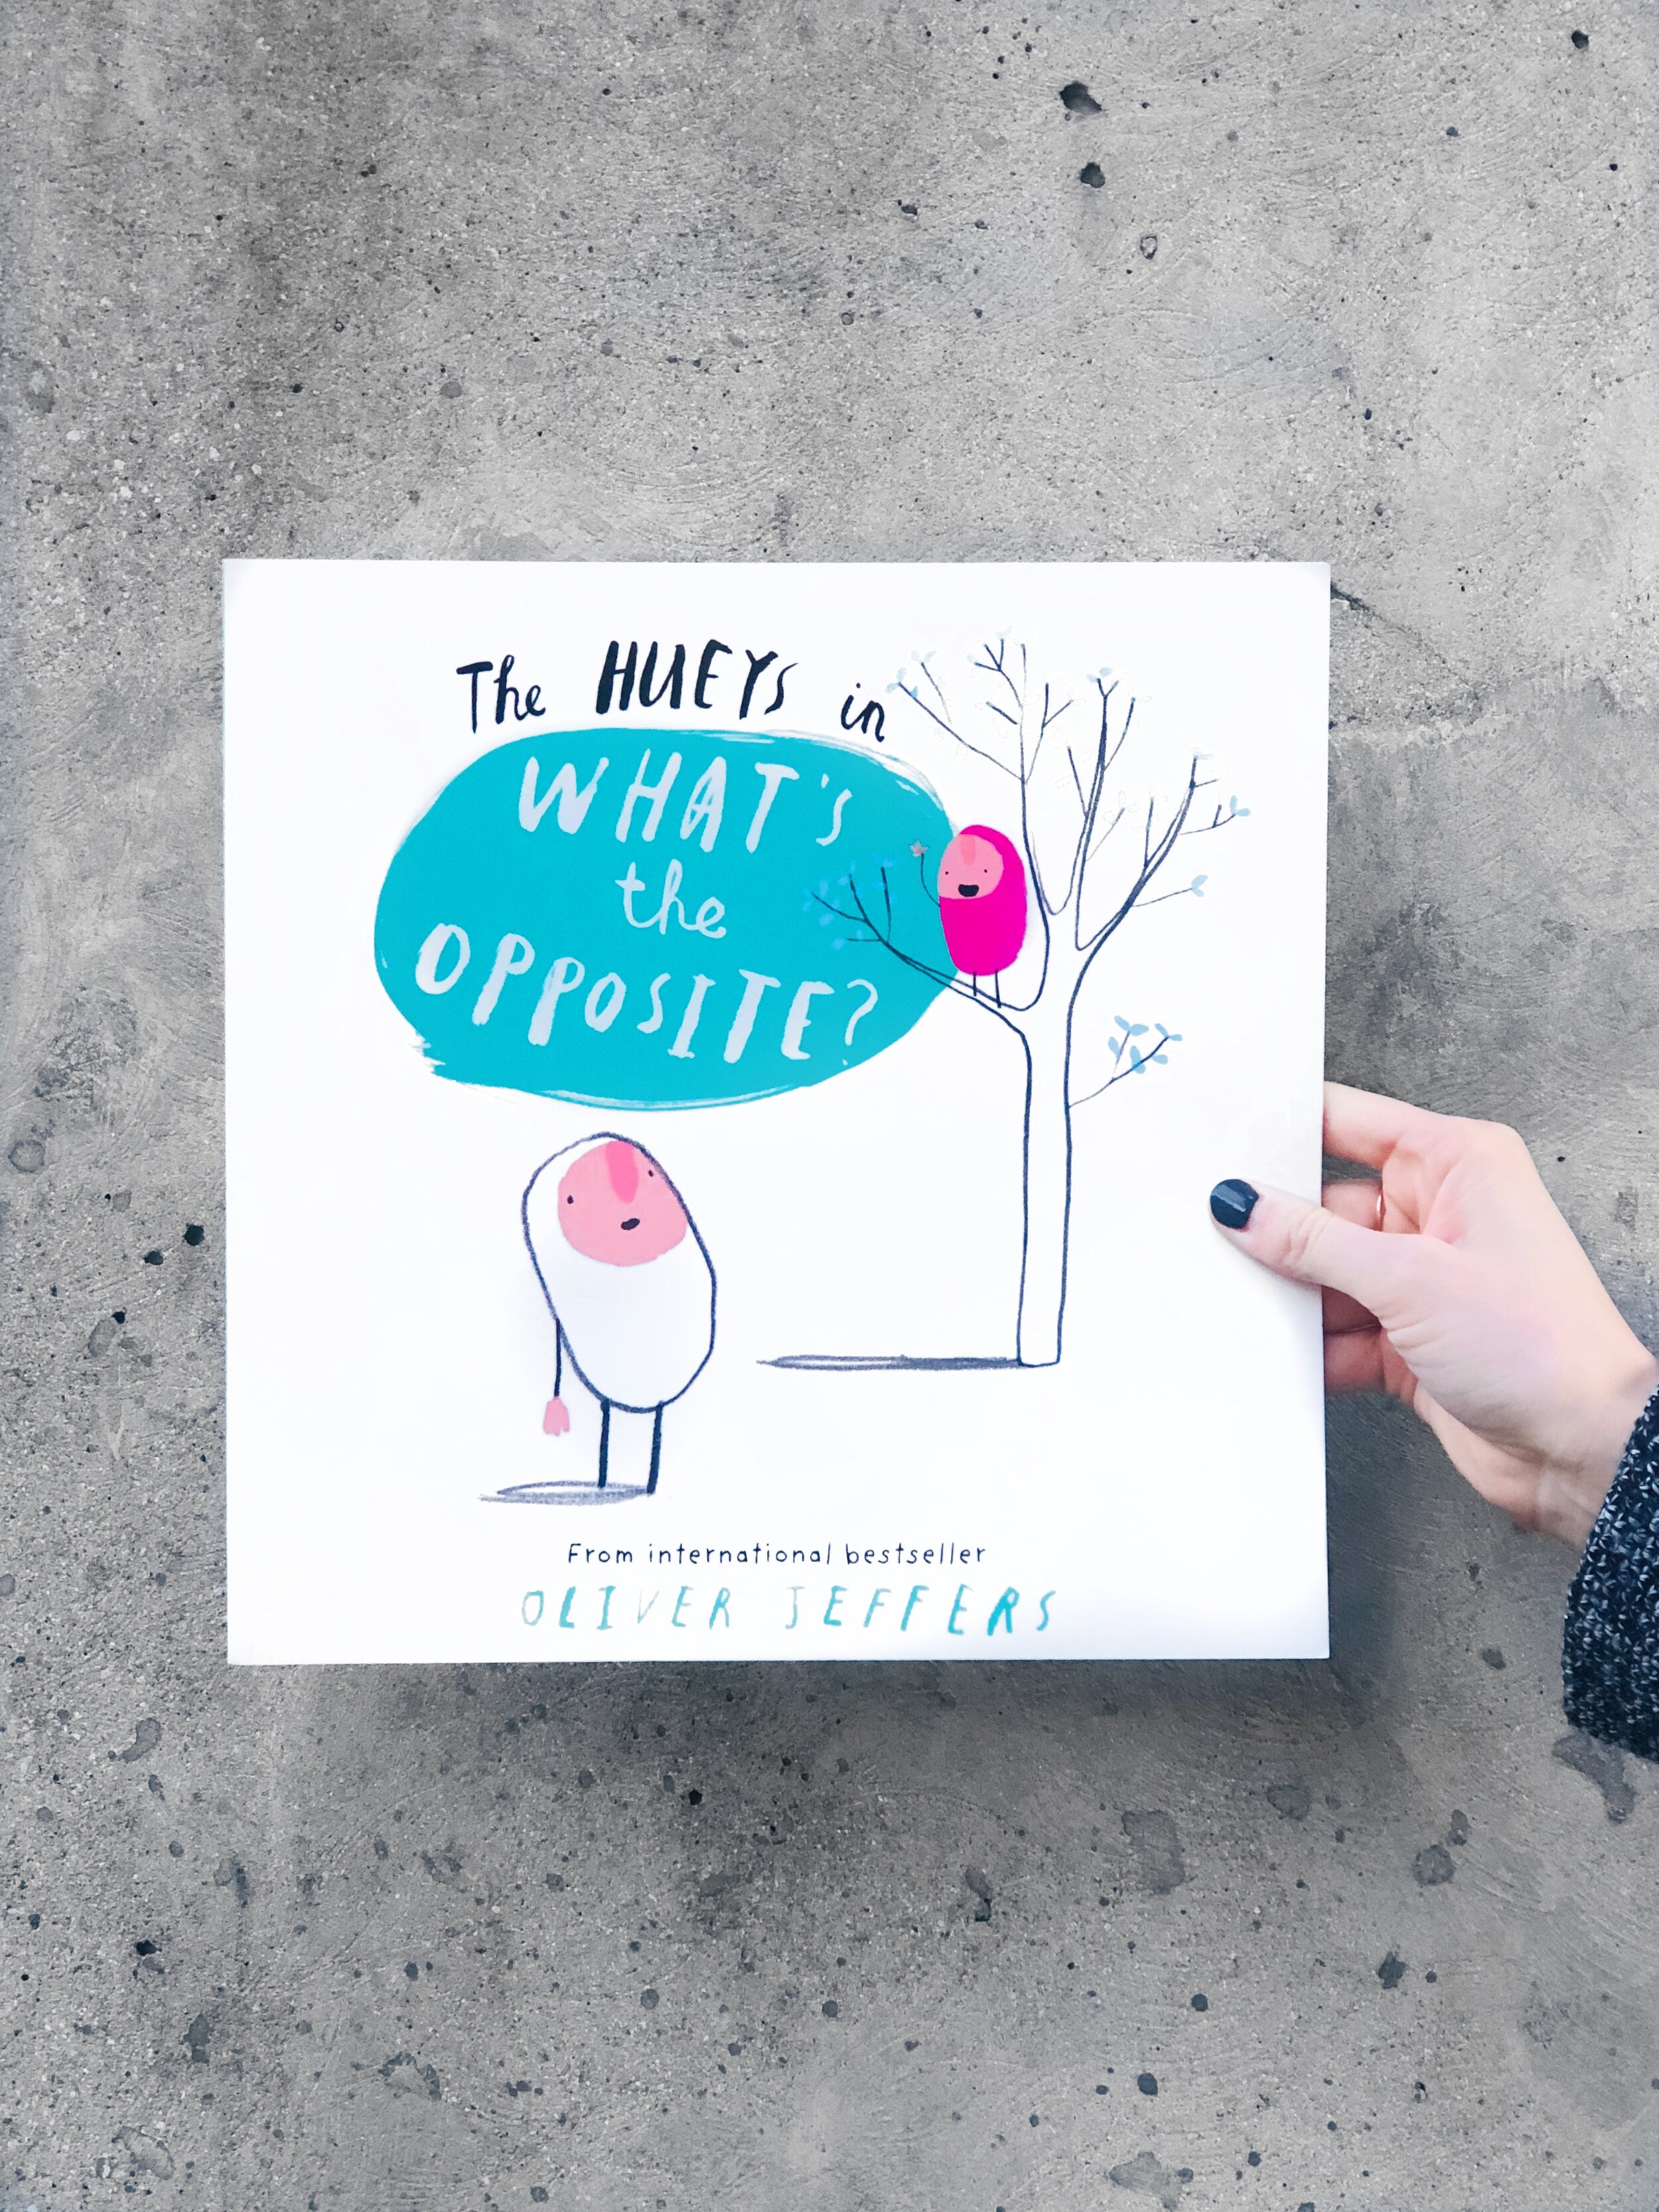 The HUEYS in
WHAT'S
the
OPPOSITE?
From international bestseller
OLIVER JEFFERS